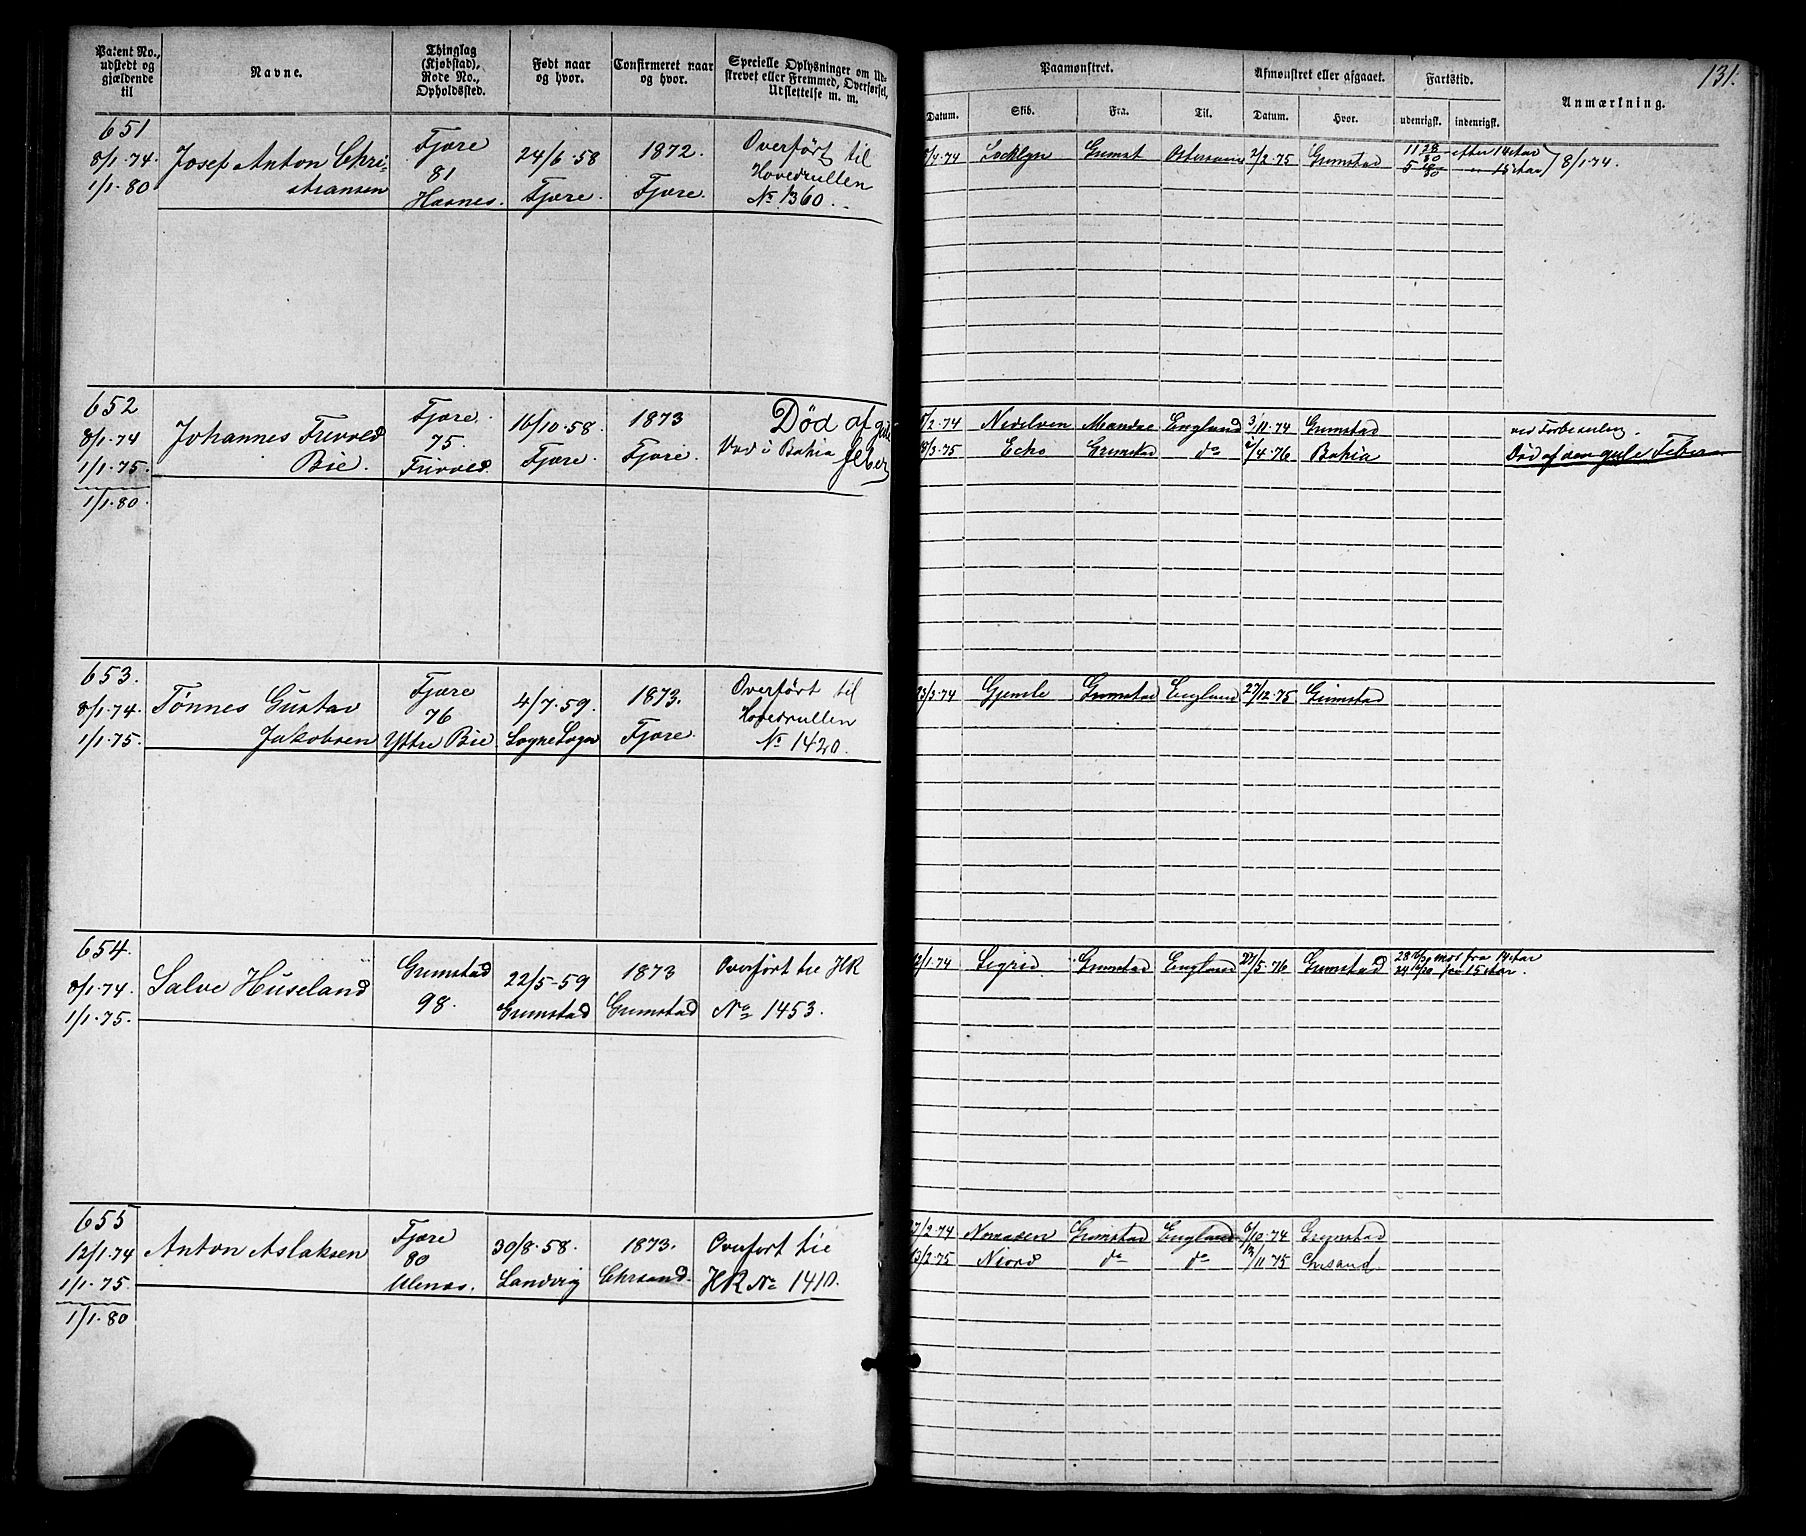 Patent No., udstedt og gjældende til
Navne.
Thinglag (Kjøbstad), Rode No., Opholdssted.
Født naar og hvor.
Confirmeret naar og hvor.
Specielle Oplysninger om Udskrevet eller Fremmed, Overførsel, Udslettelse m. m.
Paamønstret.
Afmønstret eller afgaaet.
Fartstid.
Anmærkning.
131.
Datum.
Skib.
Fra.
Til.
Datum.
Hvor.
udenrigsk.
indenrigsk.
651
8/1.74
1/1.80
Josef Anton Chri-
stiansen
Fjære
81
Hasnes.
24/6.58
Fjære.
1872.
Fjære.
Overført til
Hovedrullen
No 1360.
/4.74
Grimst
2/2.75
Grimstad
11 28/30 efter 14 Aar
5 /30 15 Aar
8/1.74.
652
8/1.74
1/1.75.
1/1.80.
Johannes Frivold
Bie.
Fjære.
75.
Frivold.
16/10.58.
Fjære.
1873
Fjære.
Død af gul
Ved i Bahia feber
/2.74 Nidelven Mandal England 3/11.74 Grimstad
/3.75 Echo Grimstad do /4.76 Bahia
ved Forbesiling.
Død af den gule Feber
653.
8/1.74.
1/1.75.
Tønnes Gustav
Jakobsen
Fjære
76
Ydtre Bie
4/7.59.
Sogne Sogn
1873.
Fjære.
Overført til
Hovedrullen
No 1420.
/3.74 Gjemle Grimstad England 27/12.75 Grimstad
654.
8/1.74.
1/1.75.
Salve Huseland
Grimstad
98.
22/5-59
Grimstad
1873
Grimstad
Overført til HR
No 1453.
12/1.74 Sigrid Grimstad England 27/5.76 Grimstad
28 mos fra 14 Aar
24 fra 15 Aar.
655
12/1.74
1/1.75.
1/1.80
Anton Aslaksen
Fjære
80
Ulenes.
30/8.58.
Landvig
1873.
Chrsand.
Overført til
HR No 1410.
/2.74 Grimstad England 6/10.74 Grimstad
13/2.75 Niord do do /11.75 Chrsand.